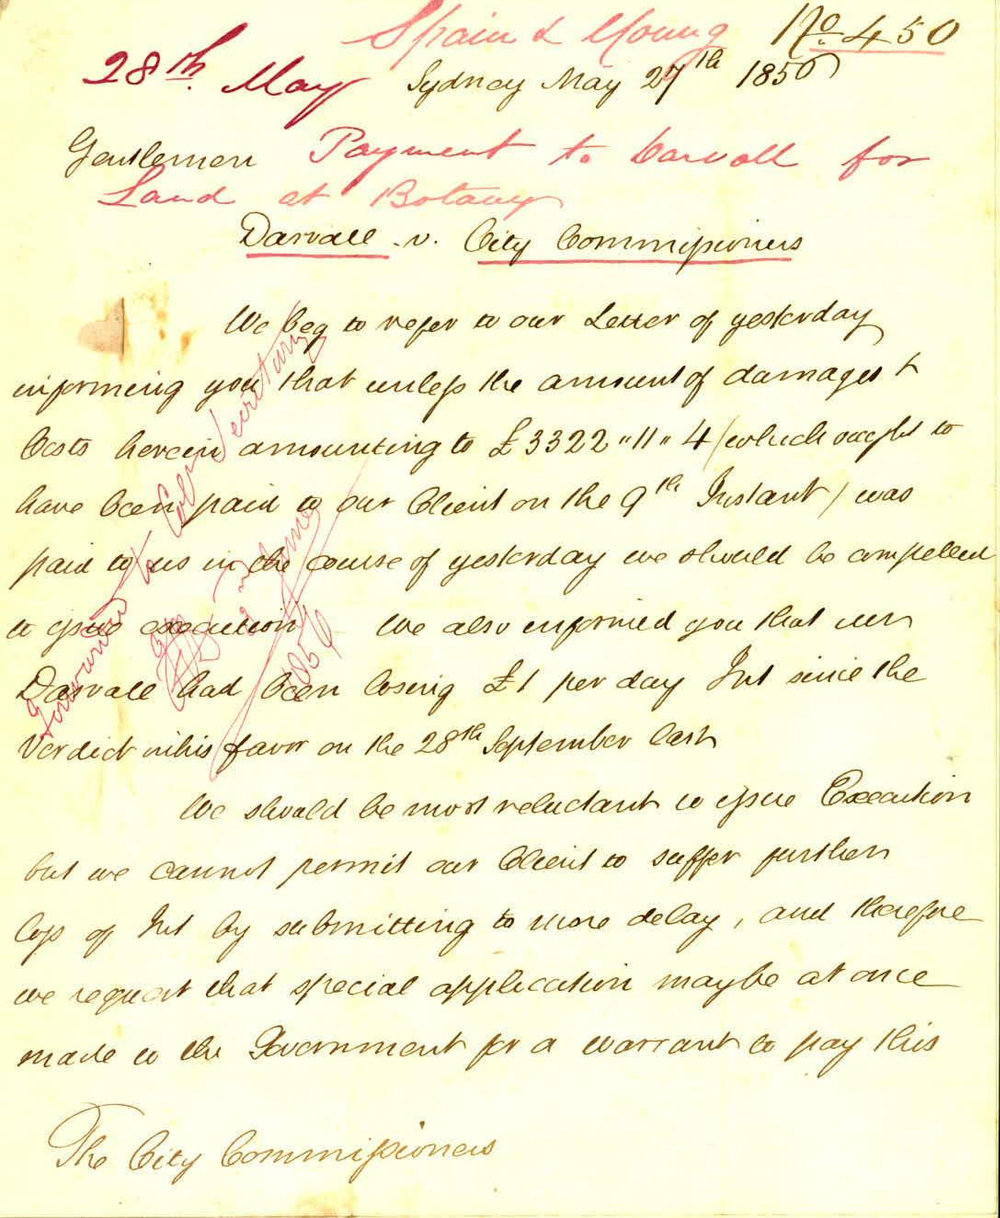 Spain & Young No. 450
28th. May Sydney May 27th 1856
Gentlemen Payment to Darvall for
Land at Botany
Darvall v. City Commissioners
We beg to refer to our Letter of yesterday
informing you that unless the amount of damages &
Costs herein amounting to £3322 " 11 " 4 (which ought to
have been paid to our Client on the 9th Instant) was
paid to us in the course of yesterday we should be compelled
to issue execution We also informed you that
Darvall had been losing £1 per day Int since the
Verdict in his favor on the 28th September last
We should be most reluctant to issue Execution
but we cannot permit our Client to suffer further
loss of Int by submitting to more delay, and therefore
we request that special application may be at once
made to the Government for a warrant to pay this
The City Commissioners
Forwarded to Coln Secretary